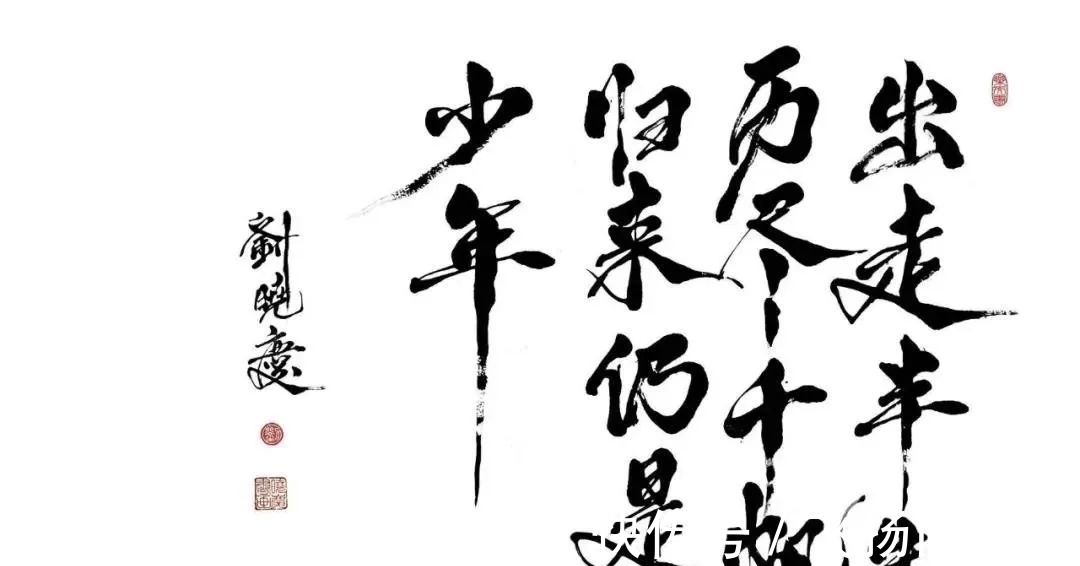 出走半
历尽千帆
归来仍是
少年
劉曉慶
快传号 /